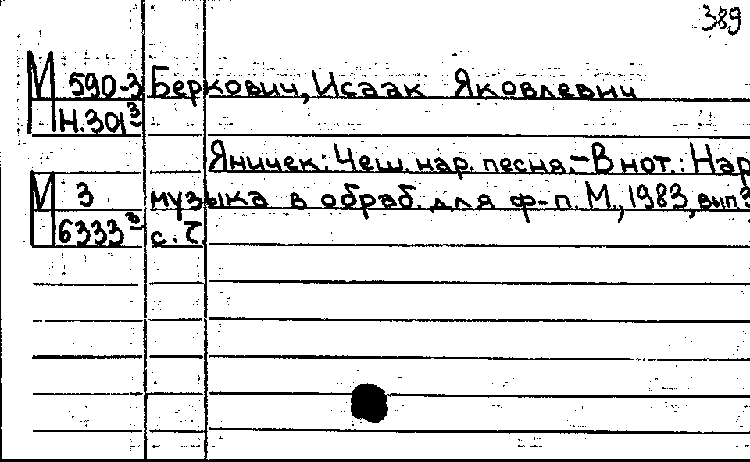 389
М 590-3 Беркович, Исаак Яковлевич
Н.301³
Яничек: Чеш. нар. песня.-В нот.: Нар
М 3 музыка в обраб. для ф-п. М., 1983, вып 3
6333³ с. 7.